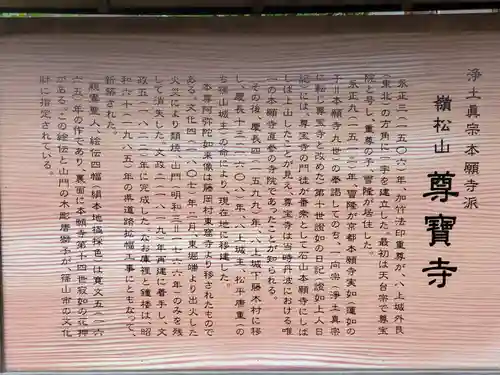 浄土真宗本願寺派
嶺松山 尊寶寺
永正三(一五〇六)年、加竹法印重尊が、八上城外艮
(東北)の方角に一宇を建立した。最初は天台宗で尊宝
院と号し、重尊の子、冨隆が居住した。
永正九(一五一二)年、冨隆が京都本願寺実如(蓮如の
子=本願寺九世)の拳諾してのち、一向宗(浄土真宗
に転じ尊宝寺と改めた。第十世證如の日記(證如上人日
記)には、尊宝寺の門徒が番衆として石山本願寺にしば
しば上山したことが見え、尊宝寺は当時丹波における唯
一の本願寺直参の寺院であったことが知られる。
その後、慶長四(一五九九)年、八上城下藤木村に移
し、慶長十三(一六〇八)年、八上城主、松平康重(の
ち篠山城主)の命により、現在地に移建した。
本尊阿弥陀如来像は藤岡村東窟寺より移されたもので
ある。文化四(一八〇七)年、二月、東堀端より出火した
火災により類焼、山門(明和三=一七六六年)のみを残
して消失した。文政二(一八一九)年再建に着手し、文
政五(一八二二)年に完成した。なお庫裡と鐘楼は、昭
和六十(一九八五)年の県道路拡幅工事にともなって、
新築された。
親鸞聖人絵伝四幅(絹本地極採色)は寛文五(一六
六五)年の作であり、裏面に本願寺第十四世寂如の花押
がある。この絵伝と山門の木彫唐獅子が篠山市の文化
財に指定されている。